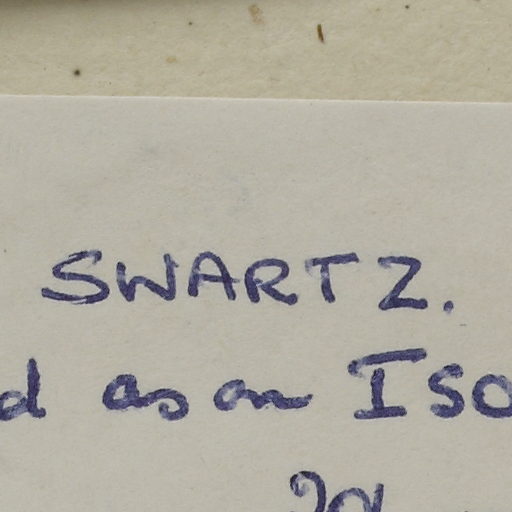 SWARTZ.
d as an ISO